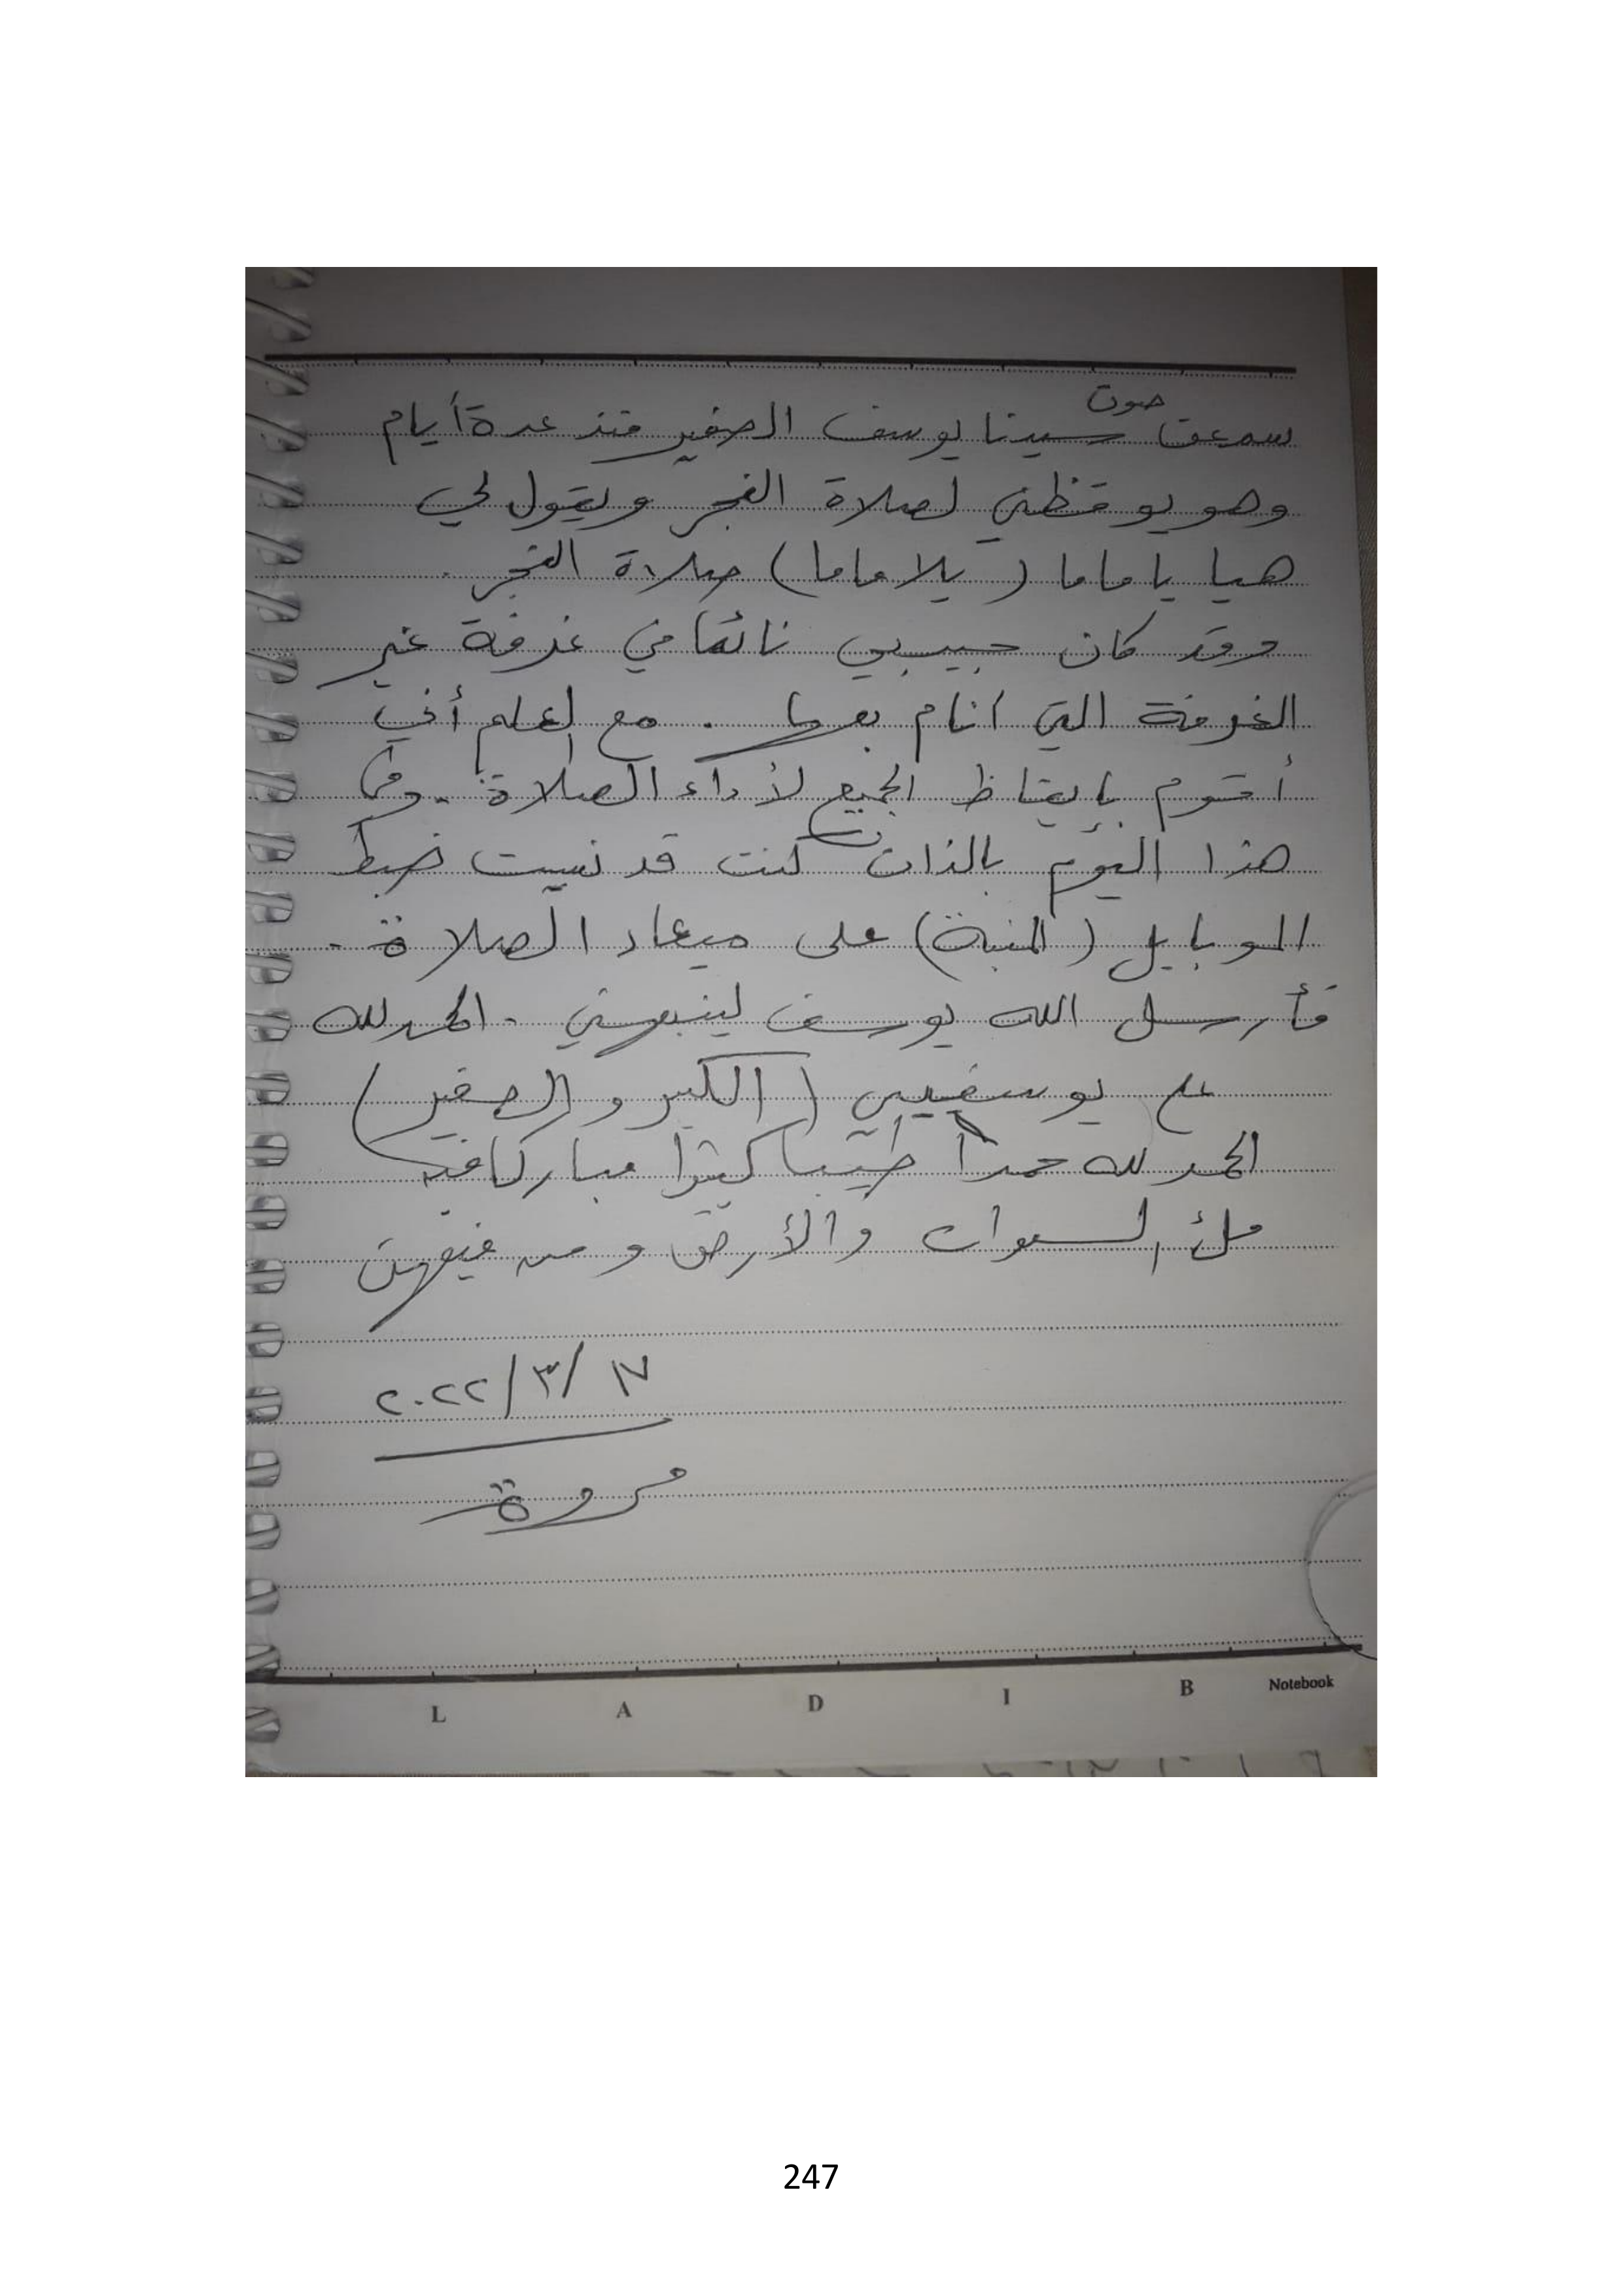 سمعت صوت سيدنا يوسف الصغير منذ عدة أيام
وهو يوقظني لصلاة الفجر ويقول لي
هيا يا ماما (يلا ماما) صلاة الفجر.
وقد كان حبيبي نائما في غرفة غير
الغرفة التي انام بها . مع العلم أني
أقوم بإيقاظ الجميع لأداء الصلاة . وفي
هذا اليوم بالذات كنت قد نسيت ضبط
الموبايل (المنبة) على ميعاد الصلاة .
فأرسل الله يوسف لينبهني . الحمد لله
على يوسفيي (الكبير والصغير)
الحمد لله حمدا طيبا كثيرا مباركا فيه
ملئ السموات والأرض ومن فيهن
١٧/٣/٢٠٢٢
مروة
L A D I B Notebook
247